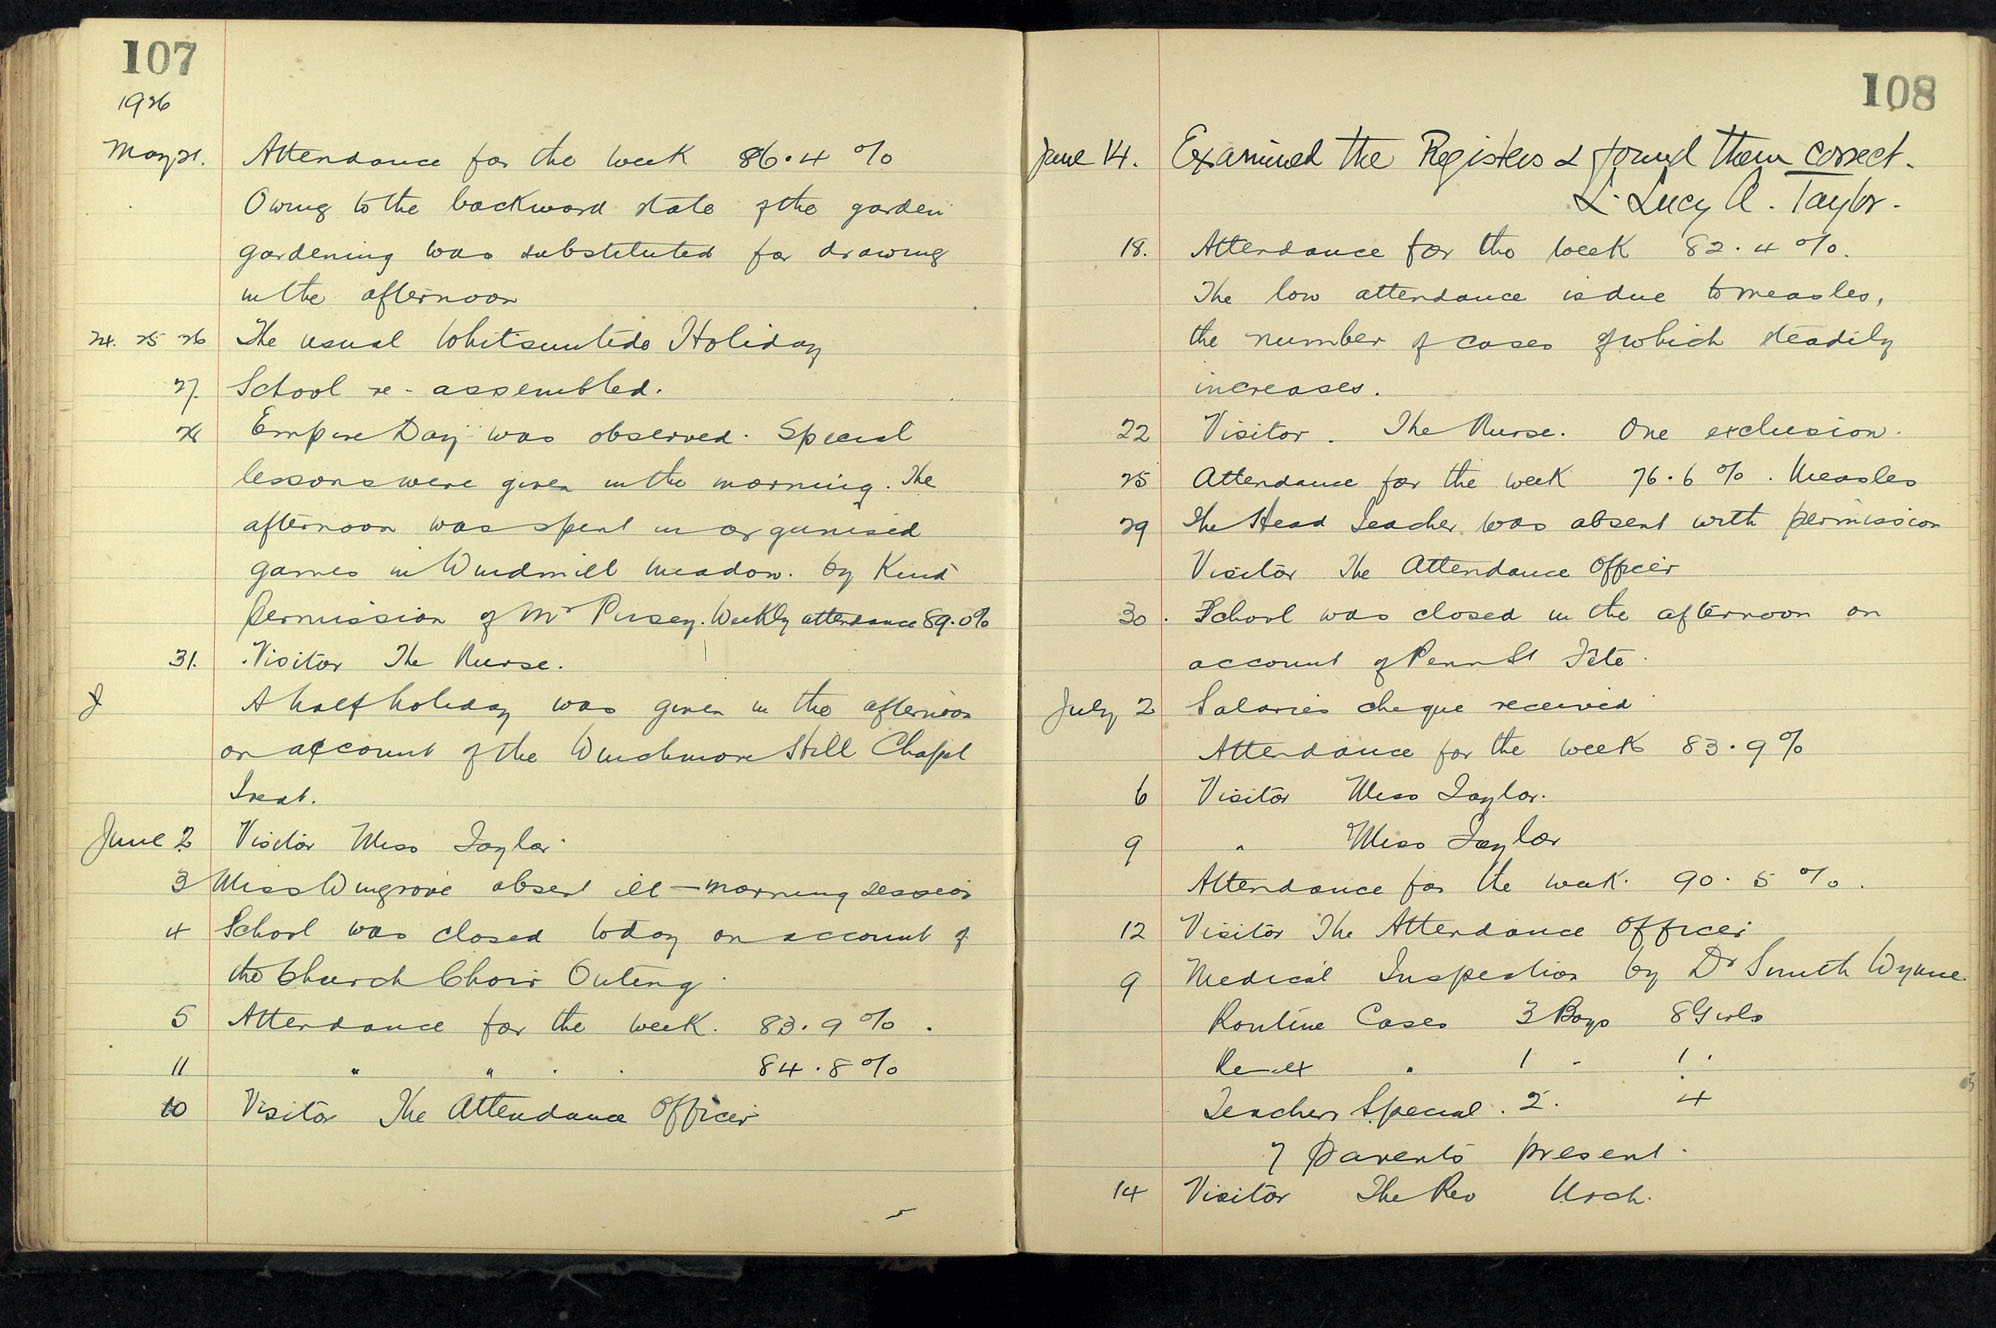 107
1926
May 21. Attendance for the week 86.4 %
Owing to the backward state of the garden
gardening was substituted for drawing
in the afternoon
24. 25 26 The usual Whitsuntide Holiday
27. School re-assembled.
28 Empire Day was observed. Special
lessons were given in the morning. The
afternoon was spent in organised
games in Windmill Meadow. by Kind
permission of Mr Pusey. Weekly attendance 89.0%
31. Visitor The Nurse.
A half holiday was given in the afternoon
on account of the Winchmore Hill Chapel
Treat.
June 2 Visitor Miss Taylor.
3 Miss Wingrove absent ill - morning session
4 School was closed today on account of
the Church Choir Outing.
5 Attendance for the week. 83.9 %.
11 " " . . 84.8 %
10 Visitor The Attendance Officer
108
June 14. Examined the Registers & found them correct.
L. Lucy A. Taylor.
18. Attendance for the week 82.4 %.
The low attendance is due to measles,
the number of cases of which steadily
increases.
22 Visitor. The Nurse. One exclusion.
25 Attendance for the week 76.6 %. Measles
29 The Head Teacher was absent with permission
Visitor The Attendance Officer
30. School was closed in the afternoon on
account of Penn St Fête.
July 2 Salaries cheque received
Attendance for the week 83.9 %
6 Visitor Miss Taylor.
9 " Miss Taylor
Attendance for the week. 90.5 %.
12 Visitor The Attendance Officer
9 Medical Inspection by Dr Smith Wynne
Routine Cases 3 Boys 8 Girls
Re-ex " 1 - 1.
Teachers Special. 2. 4
7 parents present.
14 Visitor The Rev